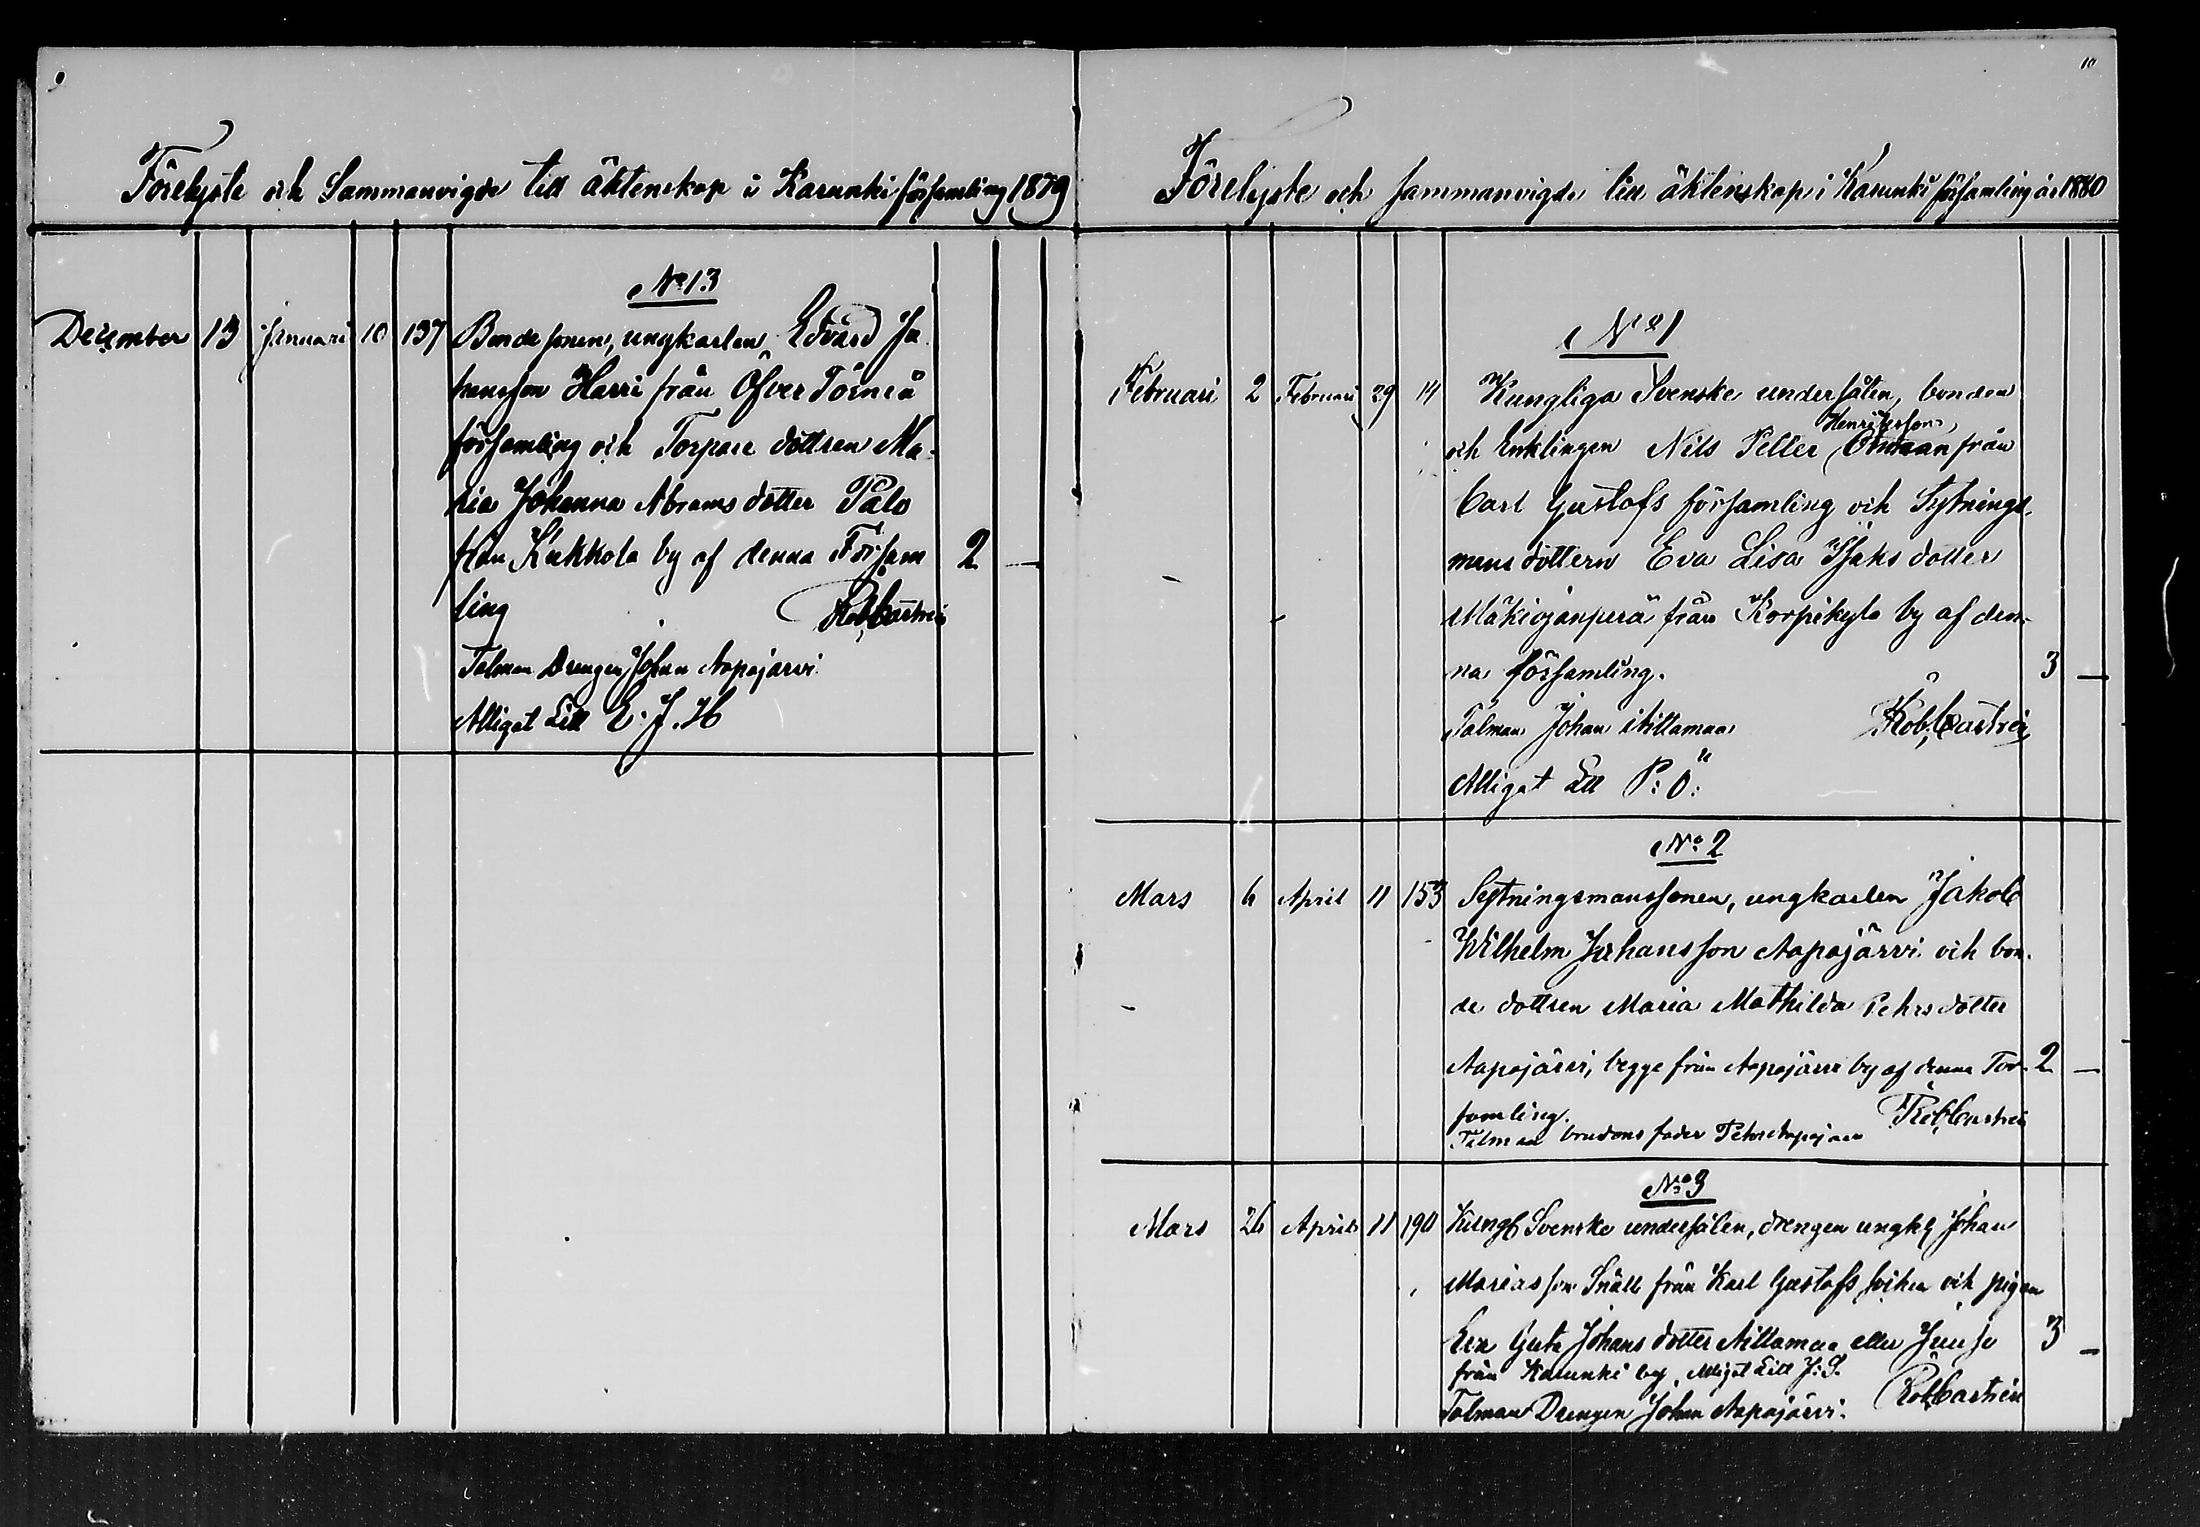 9
Förelyste och Sammanvigde till äktenskap i Karunki församling 1879
No 13
December 13 Januari 10 137 Bonde sonen, ungkarlen Edvard Jo
hansson Harri från Öfver Torneå
församling och Torpare dottren Ma-
ria Johanna Abrams dotter Palo
från Kukkola by af denna Församl 2 —
ling Rob Castrén
Talman Drengen Johan Aapajärvi
Alligat Litt E. J. H
10
Förelyste och sammanvigde till äktenskap i Karunki församling år 1880
No 1
Februari 2 Februari 29 14 Kungliga Svenske undersåten, bonden
Henriksson,
och Enklingen Nils Petter från
Carl Gustafs församling och Sytnings-
mans dottern Eva Lisa Isaks dotter
Mäkiojanperä från Korpikylä by af den-
na församling. 3 —
Talman Johan Niitamaa Rob, Castrén
Alligat Litt P: Ö:
No 2
Mars 6 April 11 153 Sytningsmanssonen, ungkarlen Jakob
Wilhelm Johansson Aapajärvi och bon-
de dottren Maria Mathilda Pehrs dotter
Aapajärvi, begge från Aapajärvi by af denna För- 2 —
samling. Rob, Castrén
Talman brudens fader Pehr Aapajärvi
No 3
Mars 26 April 11 190 Kungl Svenske undersåten, drengen ungk Johan
Mariasson Snäll från Karl Gustafs soken och pigan
Greta Johans dotter Niitamaa eller Juuso 3 —
från Karunki by, Alligat Litt J. S.
Talman Drengen Johan Aapajärvi. Rob Castrén